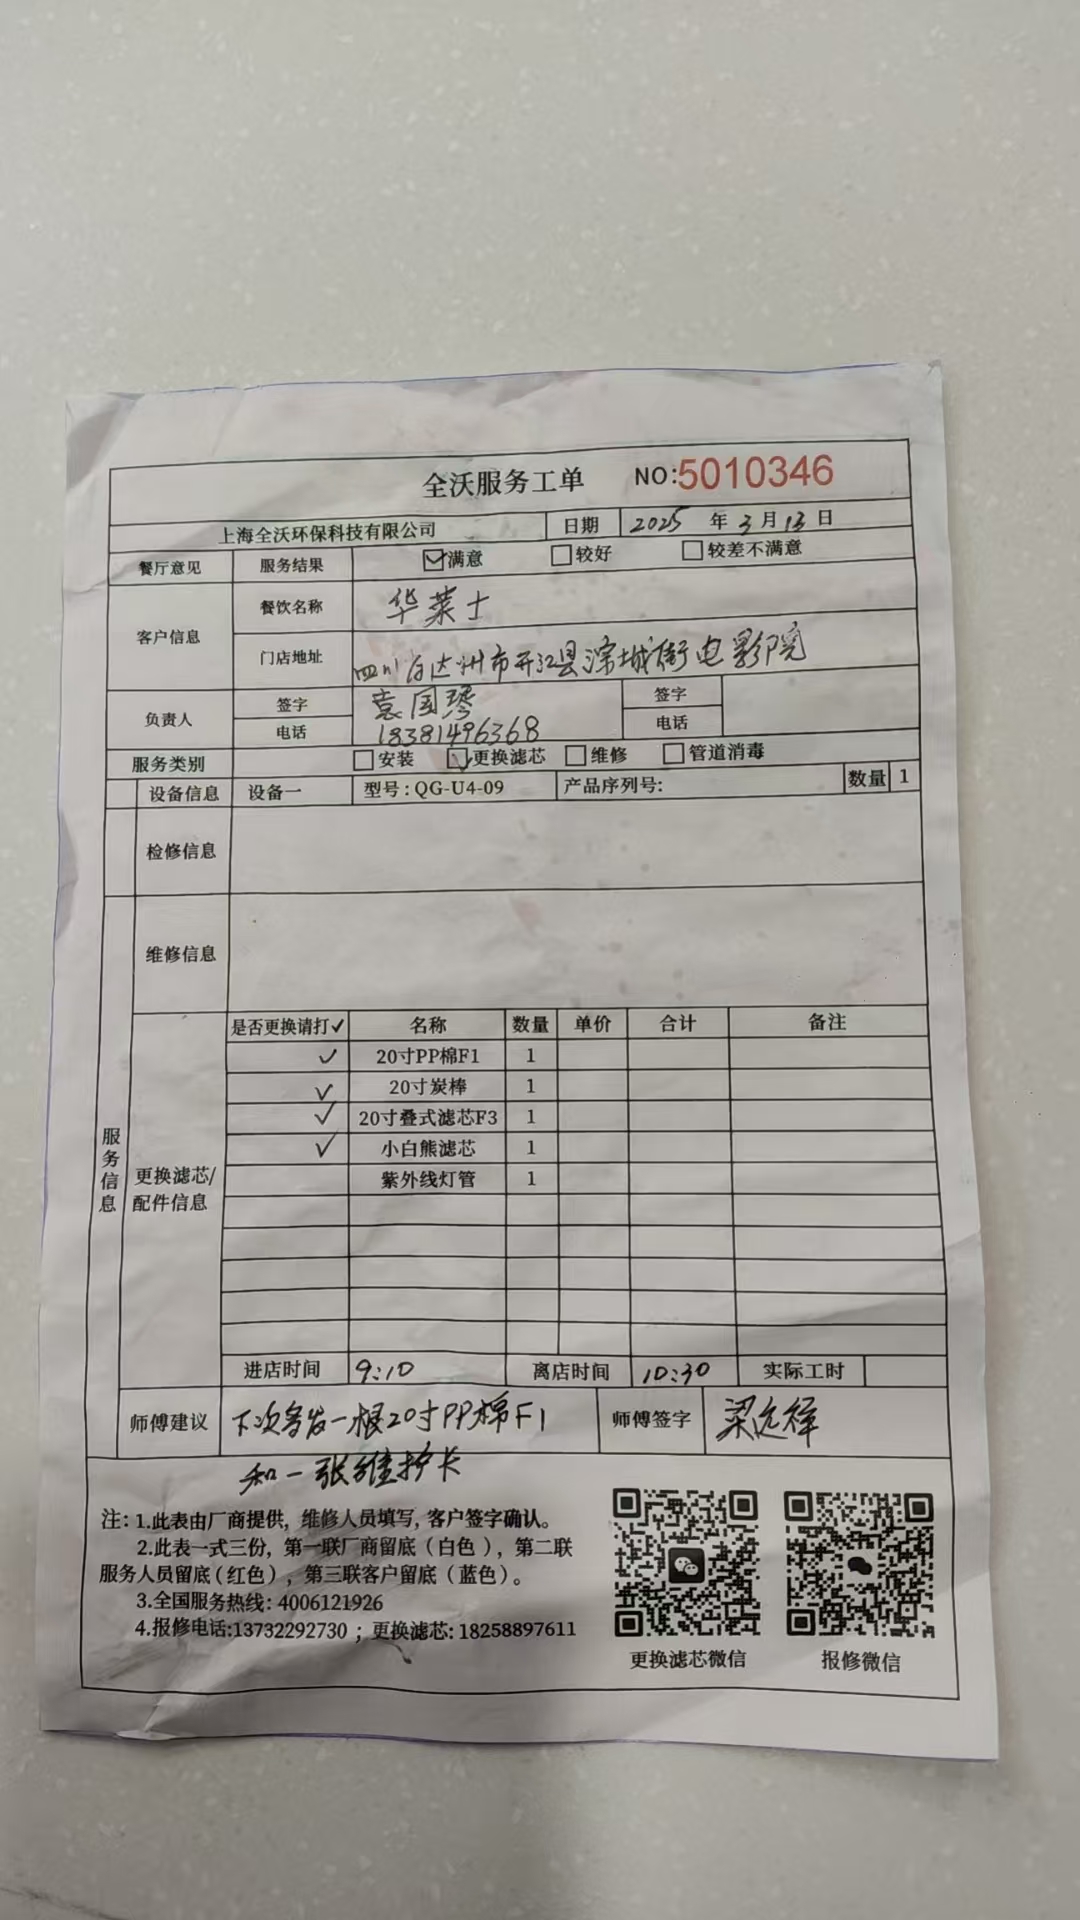 全沃服务工单 NO:5010346
上海全沃环保科技有限公司 日期 2025 年 3 月 13 日
餐厅意见 服务结果 满意 较好 较差不满意
客户信息 餐饮名称 华莱士
门店地址 四川省达州市开江县淙城街电影院
负责人 签字 袁国琴 签字
电话 18381496368 电话
服务类别 安装 更换滤芯 维修 管道消毒
设备信息 设备一 型号:QG-U4-09 产品序列号: 数量 1
检修信息
维修信息
服务信息
更换滤芯/配件信息
是否更换请打✓ 名称 数量 单价 合计 备注
✓ 20寸PP棉F1 1
✓ 20寸炭棒 1
✓ 20寸叠式滤芯F3 1
✓ 小白熊滤芯 1
紫外线灯管 1
进店时间 9:10 离店时间 10:30 实际工时
师傅建议 下次多发一根20寸PP棉F1 师傅签字 梁远祥
和一张维护卡
注: 1.此表由厂商提供, 维修人员填写, 客户签字确认。
2.此表一式三份, 第一联厂商留底(白色), 第二联
服务人员留底(红色), 第三联客户留底(蓝色)。
3.全国服务热线: 4006121926
4.报修电话:13732292730 ; 更换滤芯: 18258897611
更换滤芯微信 报修微信